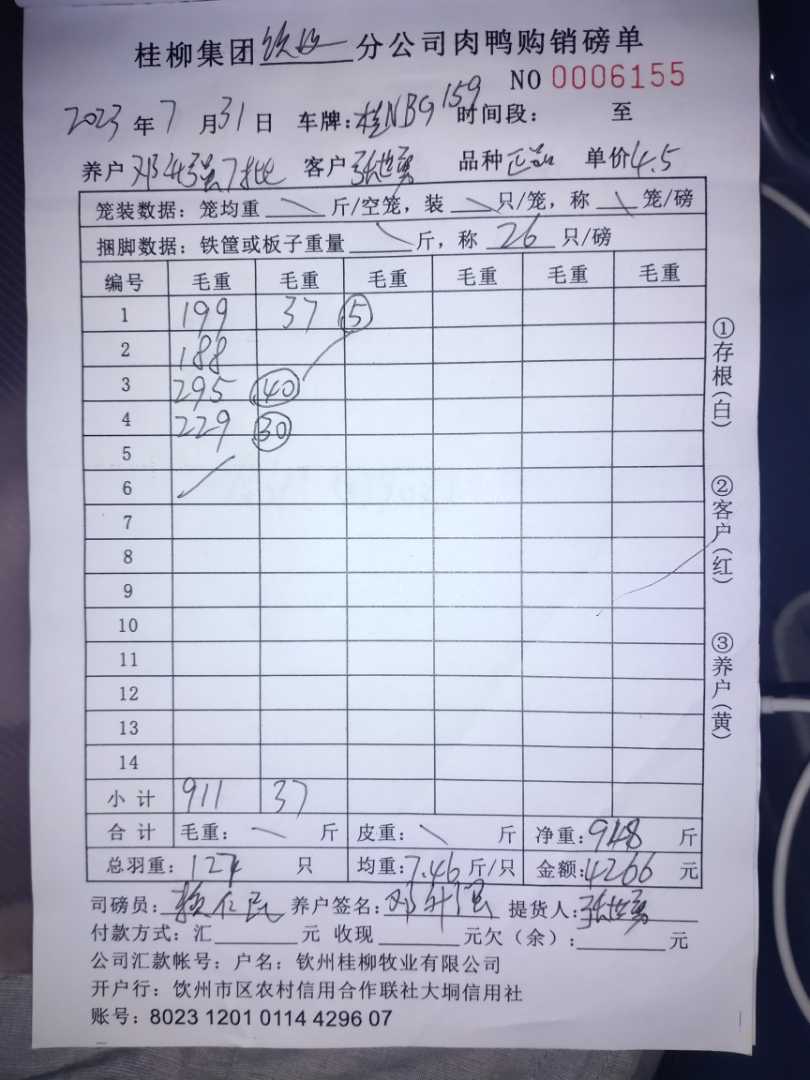 桂柳集团钦州分公司肉鸭购销磅单
NO 0006155
2023年7月31日 车牌:桂NBG159 时间段: 至
养户 邓 客户 张世勇 品种 正品 单价4.5
笼装数据: 笼均重 斤/空笼, 装 只/笼, 称 笼/磅
捆脚数据: 铁筐或板子重量 斤, 称 26 只/磅
编号 毛重 毛重 毛重 毛重 毛重 毛重
1 199 37 5
2 188
3 295 40
4 229 30
5
6
7
8
9
10
11
12
13
14
小计 911 37
合计 毛重: 斤 皮重: 斤 净重:948 斤
总羽重: 127 只 均重:7.46斤/只 金额:4266 元
司磅员: 养户签名: 邓 提货人:张世勇
付款方式: 汇 元 收现 元欠(余): 元
公司汇款帐号: 户名: 钦州桂柳牧业有限公司
开户行: 钦州市区农村信用合作联社大垌信用社
账号: 8023 1201 0114 4296 07
①存根(白)
②客户(红)
③养户(黄)